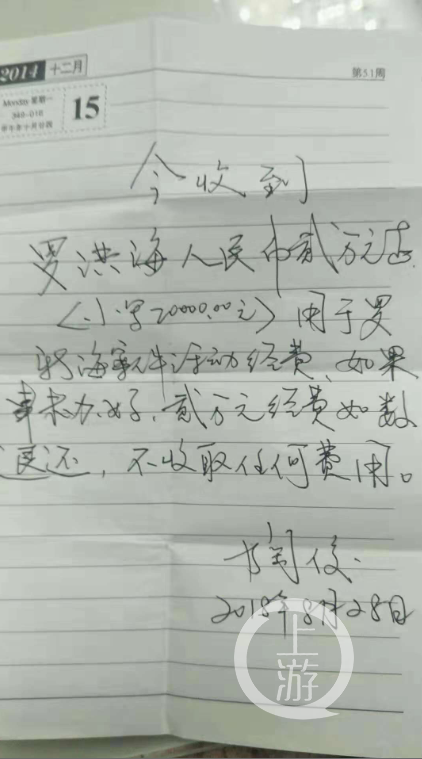 2014 十二月
第51周
Monday 星期一
15
今收到
罗洪海人民币贰万元正
（小写20000.00元）用于罗
海案件活动经费，如果
事未办好，贰万元经费如数
退还，不收取任何费用。
陶俊
2018年8月28日
上游